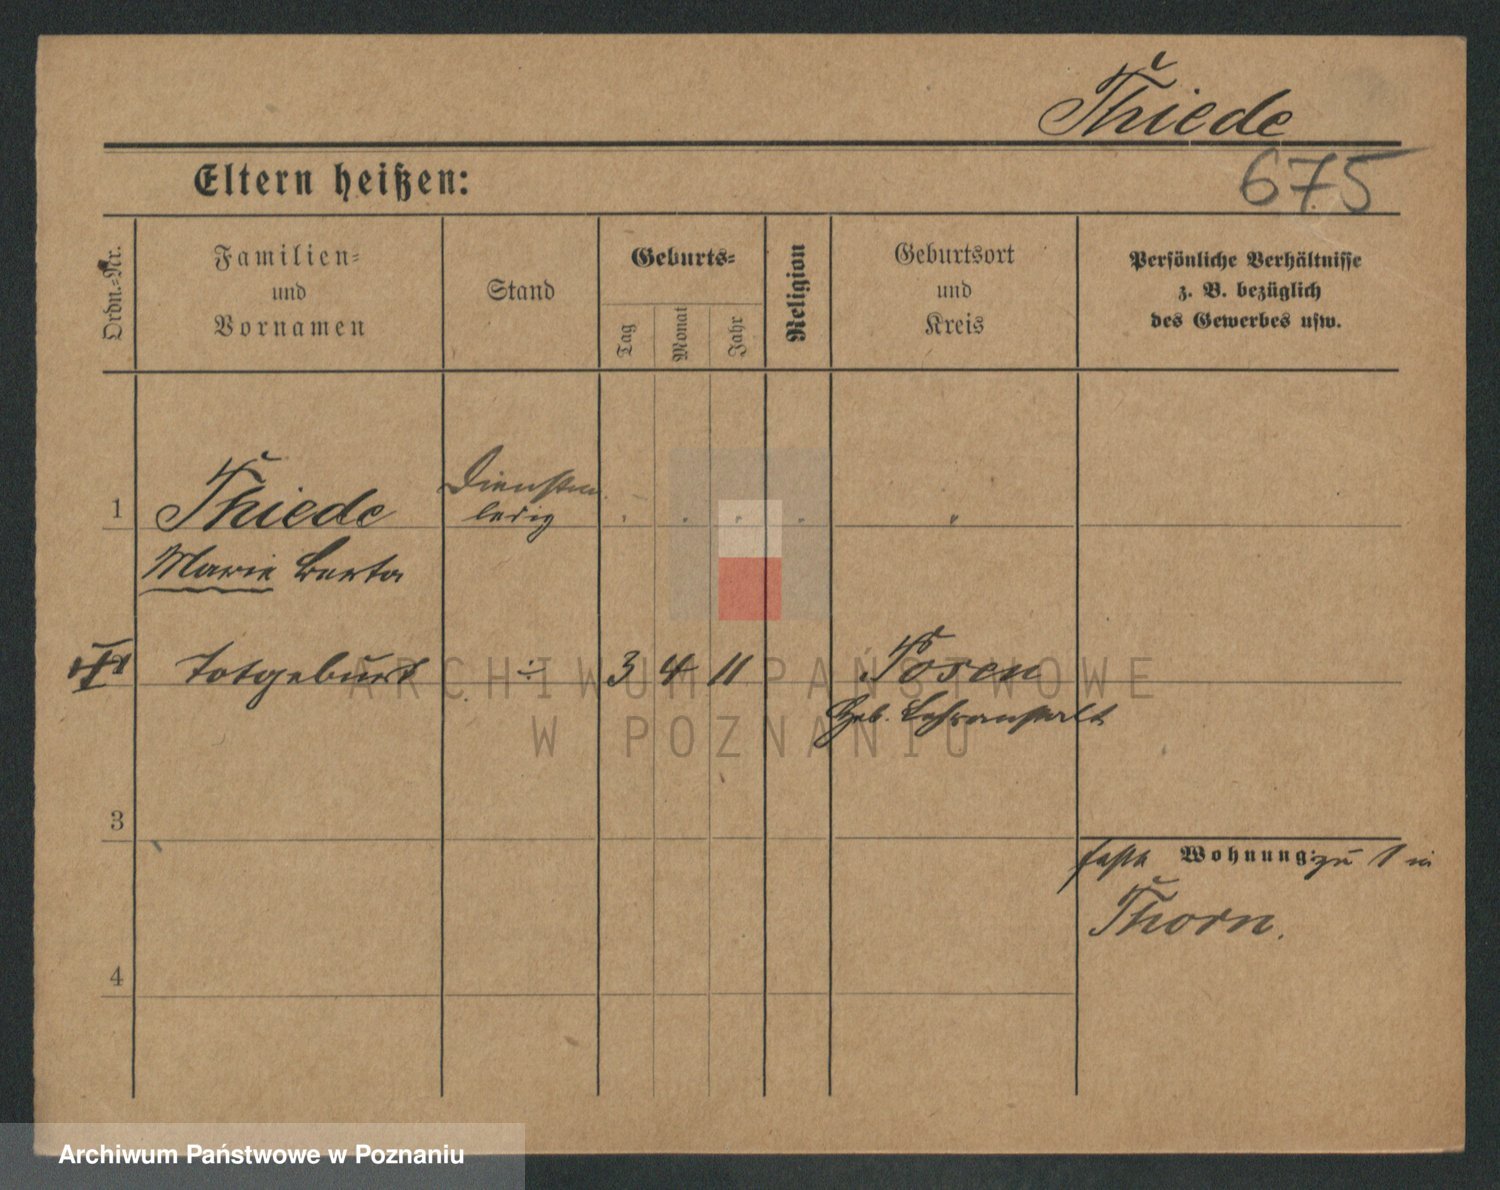 Thiede
Eltern heißen:
675
Ordn.=Nr.
Familien=
und
Vornamen
Stand
Geburts=
Tag
Monat
Jahr
Religion
Geburtsort
und
Kreis
Persönliche Verhältnisse
z. B. bezüglich
des Gewerbes usw.
1
Thiede
ledig
Marie Berta
Totgeburt
÷
3
4
11
Posen
Heb. Lehranstalt
3
feste Wohnung: zu 1 in
Thorn.
4
ARCHIWUM PAŃSTWOWE
W POZNANIU
Archiwum Państwowe w Poznaniu